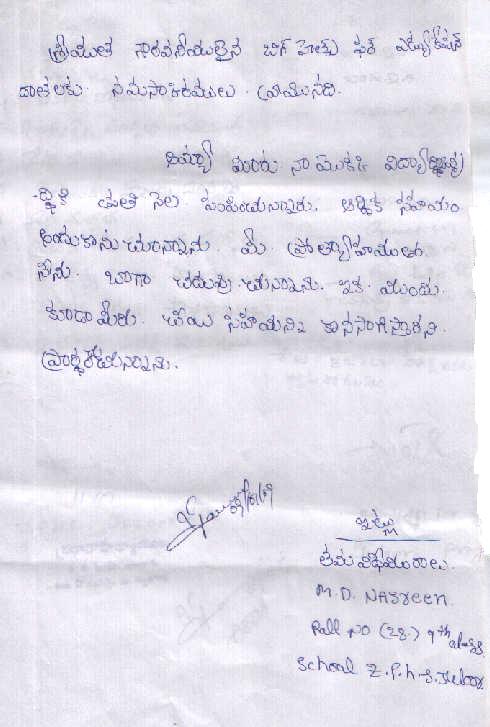 శ్రీయుత గౌరవనీయులైన బిగ్ హెల్ప్ ఫర్ ఎడ్యుకేషన్
దాతలకు నమసాకారములు వ్రాయునది.
అయ్యా మీరు నా యొక్క
ప్రతి నెల పంపించుచున్నారు. ఆర్థిక సహాయం
అందుకొనుచున్నాను. మీ
నేను బాగా చదువు చున్నాను. ఇక ముందు
కూడా మీరు చేయు సహాయన్ని కొనసాగిస్తారని
ప్రార్థిస్తున్నాను.
ఇట్లు
తమ విధేయురాలు.
M.D. NASreen.
Roll NO (28) 9th class
School Z.P.h.s.